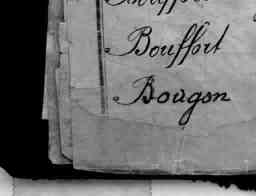 Bouffort
Bougon